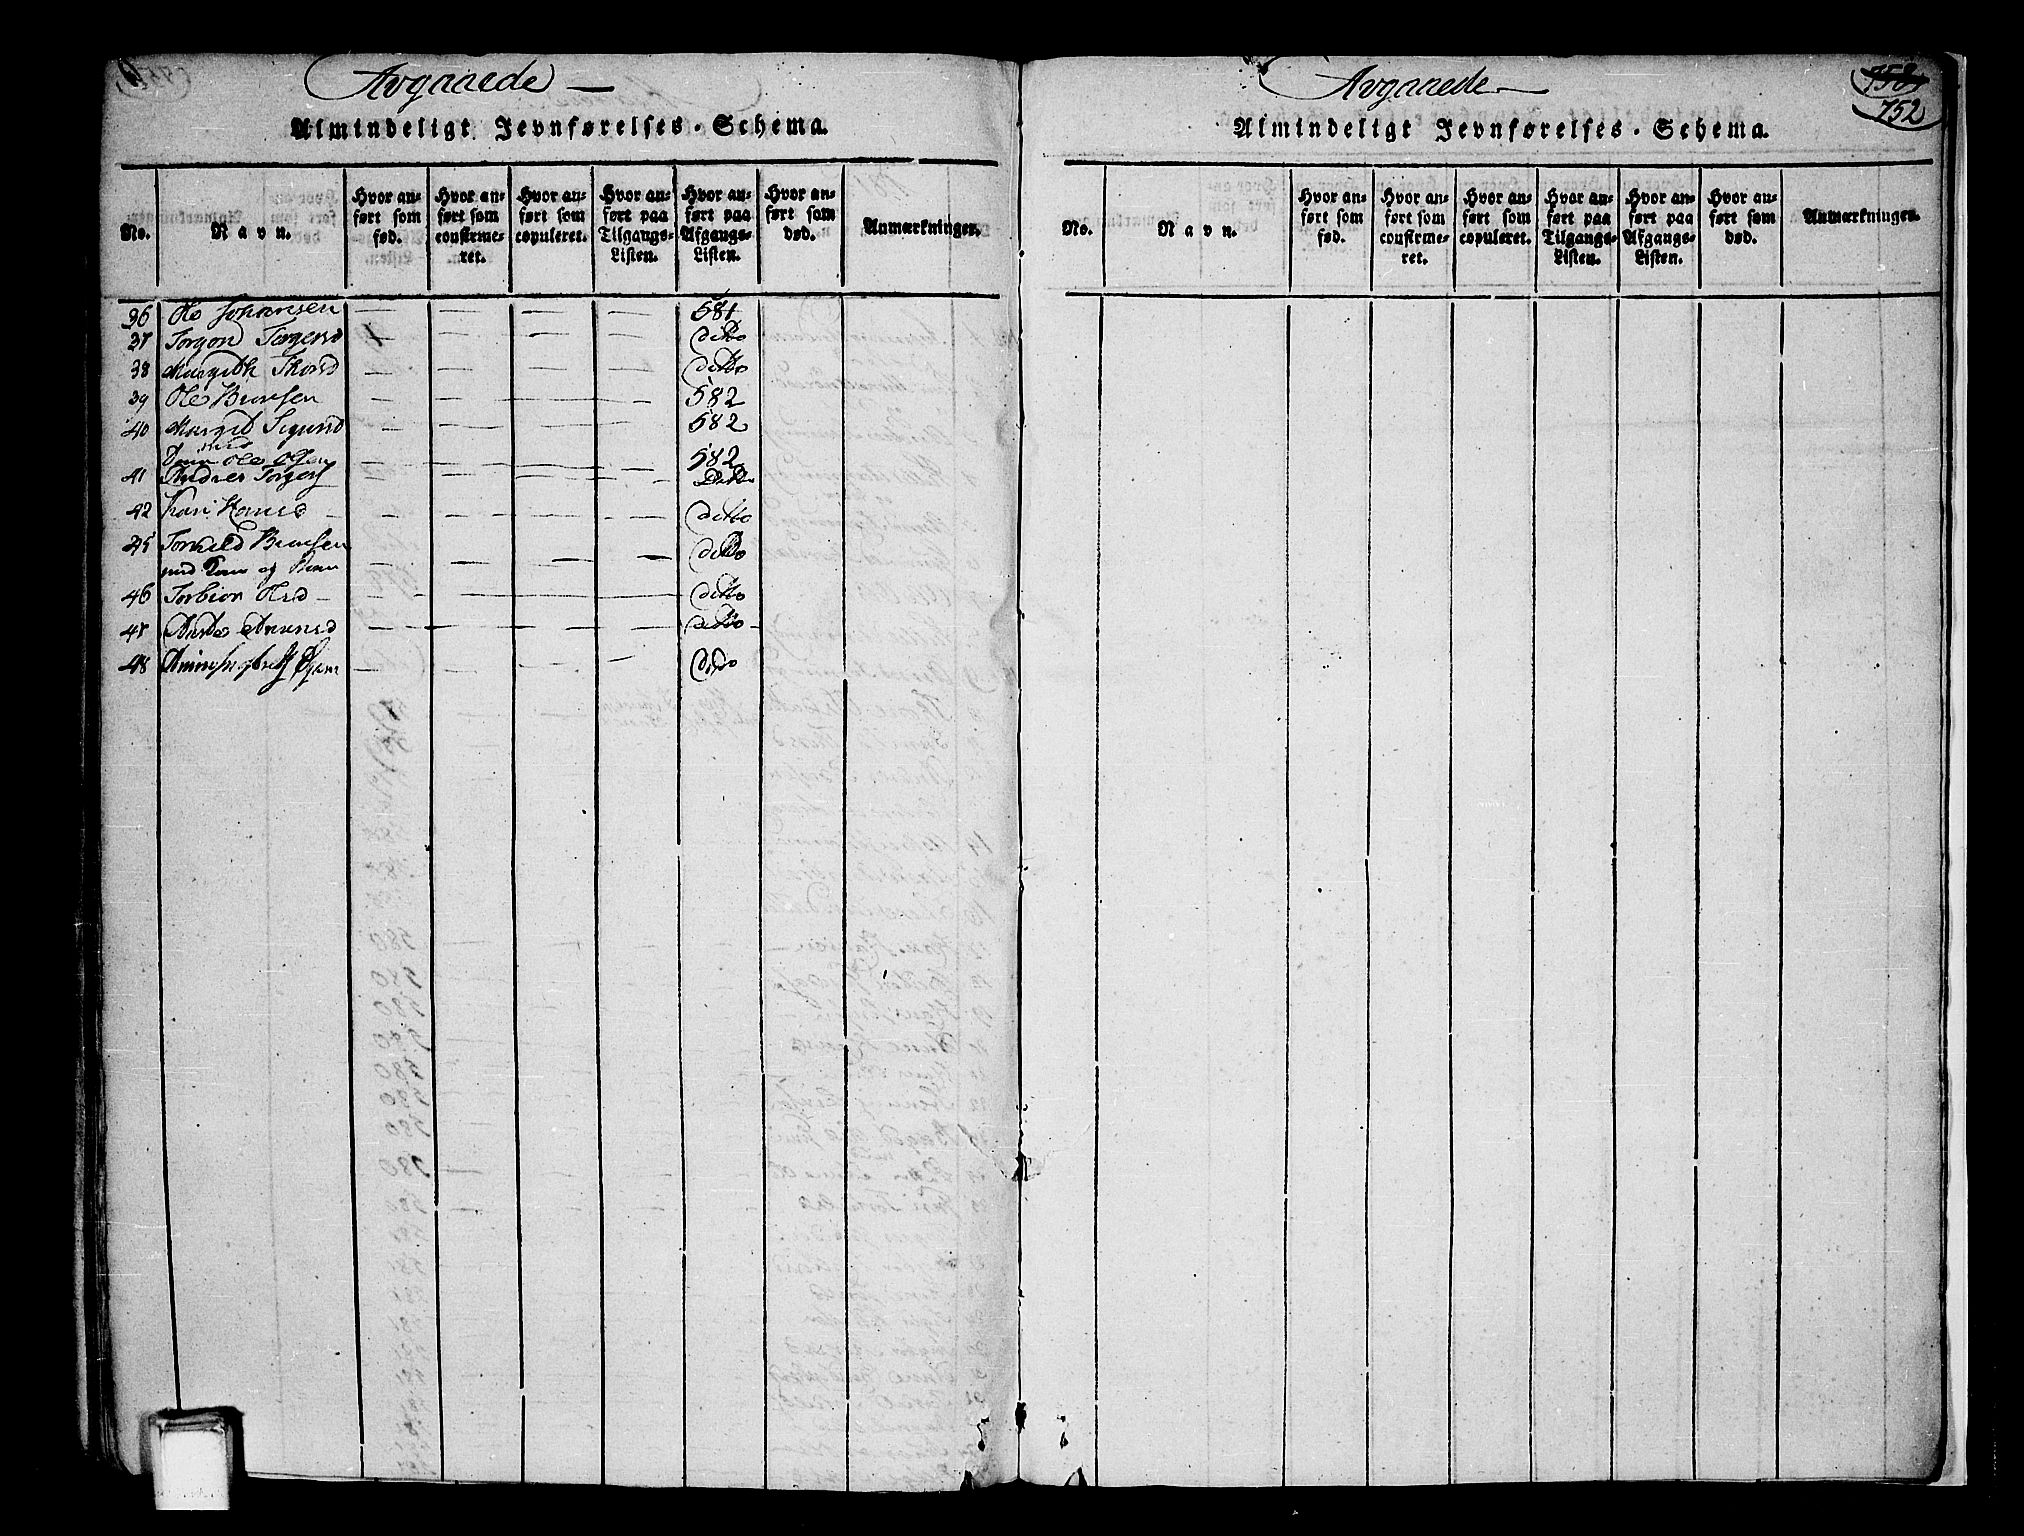 Avgaaede
Almindeligt Jevnførelses-Schema.
No.
Navn.
Hvor anført som fød.
Hvor anført som confirmeret.
Hvor anført som copuleret.
Hvor anført paa Tilgangs-Listen.
Hvor anført paa Afgangs-Listen.
Hvor anført som død.
Anmærkninger.
36 Ole Johannesen — — — — 581
37 Torgon Torgersd — — — — ditto
38 Margith Thorsd — — — — ditto
39 Ole Biønsen — — — — 582
40 Margit Sigursd — — — — 582
med Ole Olsen — — — — 582
41 Anders Torgers — — — — Ditto
42 Kari Hansd — — — — ditto
45 Torkild Biønsen
med Kone og — — — — ditto
46 Torbiør Olsd — — — — ditto
47 Anne Amunsd — — — — ditto
48 — — — — Ditto
Avgaaede
758
752
Almindeligt Jevnførelses-Schema.
No.
Navn.
Hvor anført som fød.
Hvor anført som confirmeret.
Hvor anført som copuleret.
Hvor anført paa Tilgangs-Listen.
Hvor anført paa Afgangs-Listen.
Hvor anført som død.
Anmærkninger.